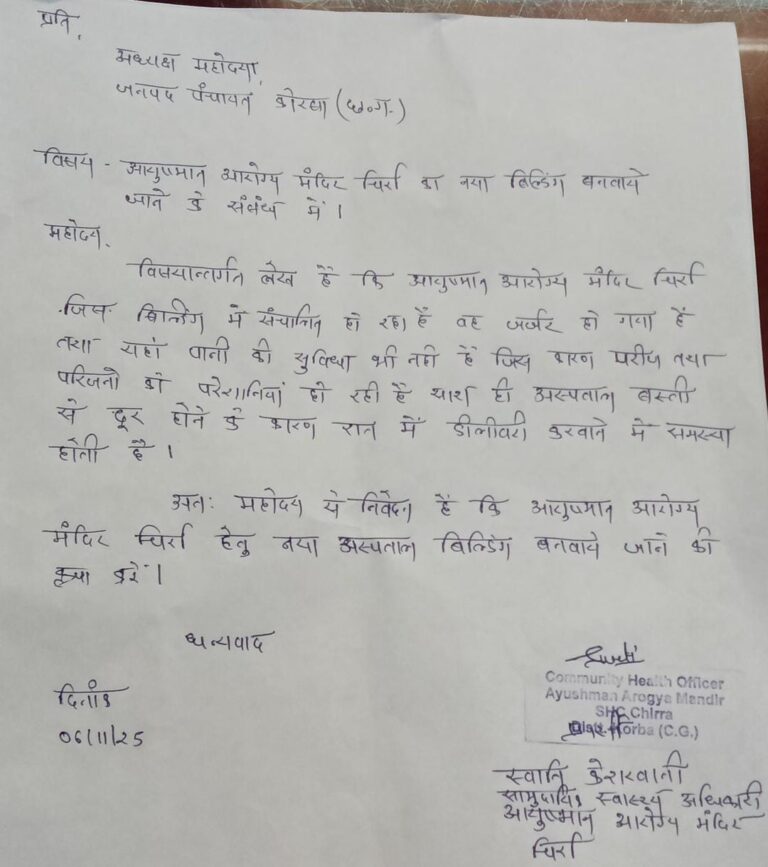 प्रति,
अध्यक्ष महोदया,
जनपद पंचायत कोरबा (छ०ग०)
विषय - आयुष्मान आरोग्य मंदिर चिर्रा का नया बिल्डिंग बनवाये
जाने के संबंध में।
महोदय,
विषयान्तर्गत लेख है कि आयुष्मान आरोग्य मंदिर चिर्रा
जिस बिल्डिंग में संचालित हो रहा है वह जर्जर हो गया है
तथा यहां पानी की सुविधा भी नही है जिस कारण मरीज तथा
परिजनो को परेशानियां हो रही है साथ ही अस्पताल बस्ती
से दूर होने के कारण रात में डीलीवरी करवाने मे समस्या
होती है।
अतः महोदय से निवेदन है कि आयुष्मान आरोग्य
मंदिर चिर्रा हेतु नया अस्पताल बिल्डिंग बनवाये जाने की
कृपा करें।
धन्यवाद
दिनांक
06/11/25
Swati
Community Health Officer
Ayushman Arogya Mandir
SHC Chirra
Dist. Korba (C.G.)
स्वाति केशरवानी
सामुदायिक स्वास्थ्य अधिकारी
आयुष्मान आरोग्य मंदिर
चिर्रा